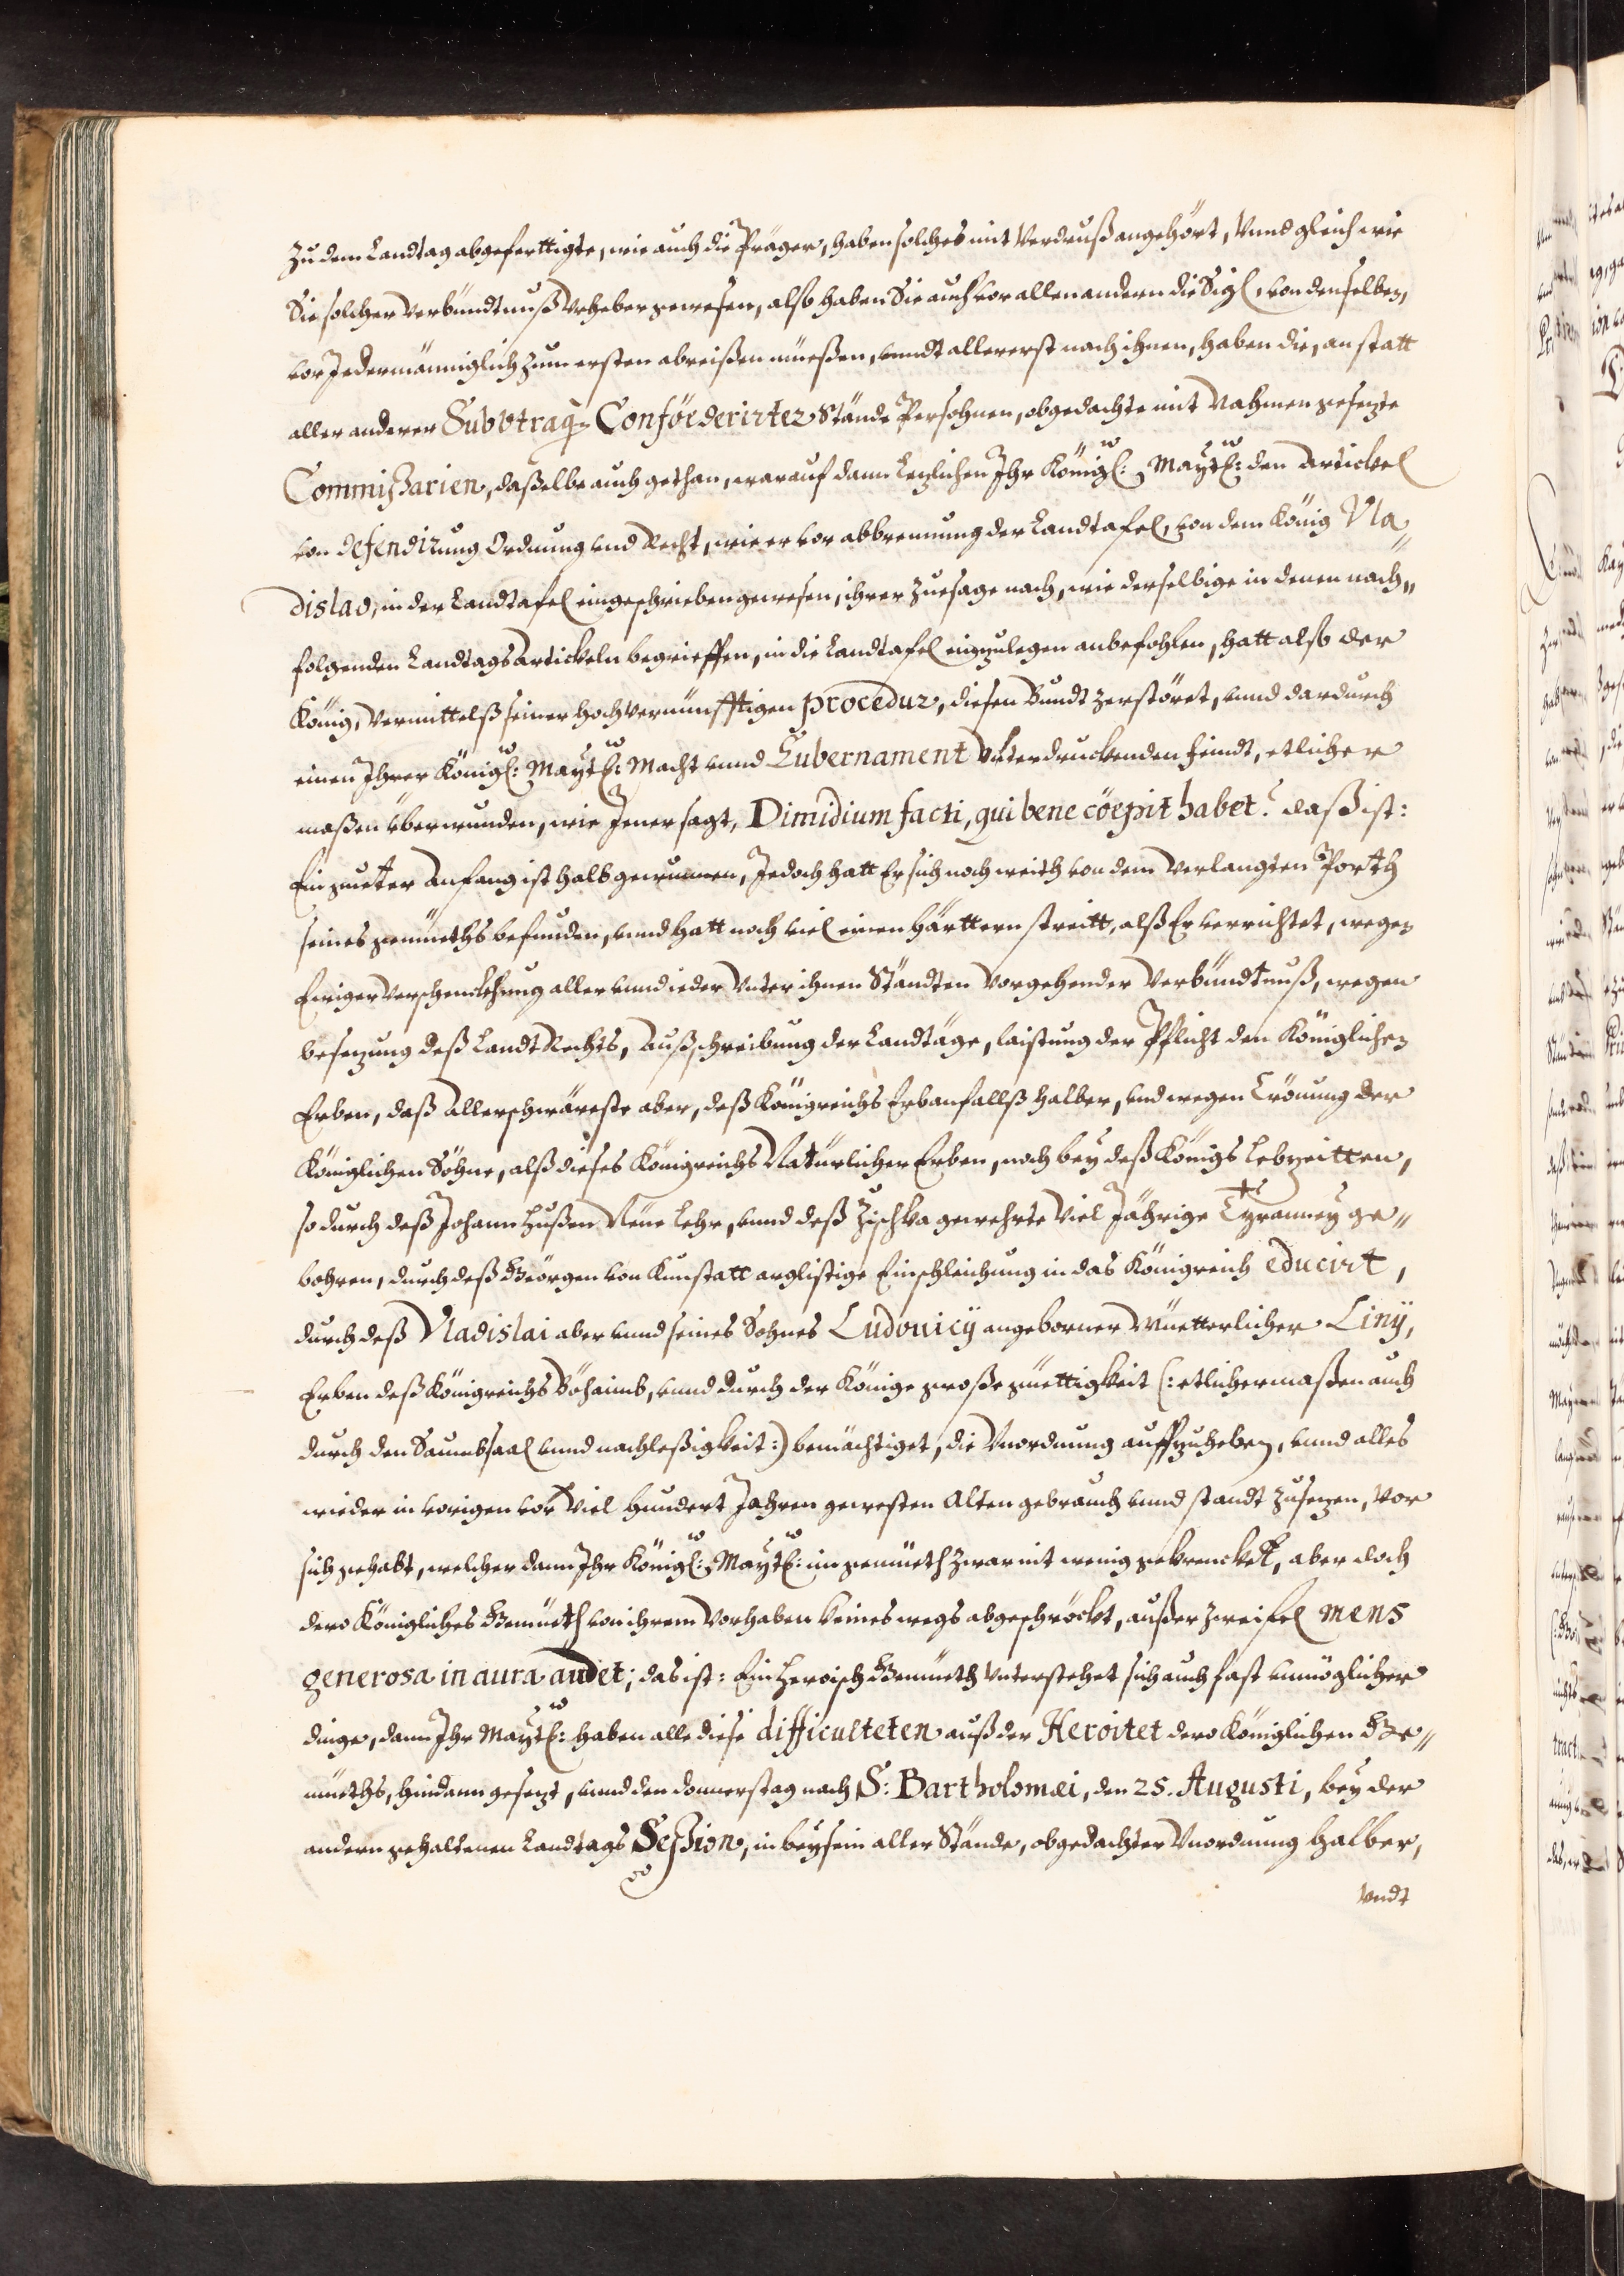 zu dem Landtag abgeferttigte, wie auch die Präger, haben solches mit Verdruß angehört, Vnnd gleich wie
Sie solcher Verbündtnuß Vrheber gewesen, also haben Sie auch vor allen andern die Sigl, von denselben,
vor Jedermänniglich zum ersten abreißen müeßen, vnndt allererst nach ihnen, haben die, an statt
aller anderer Subvtraq₃ Conföederirter Stände Persohnen, obgedachte mit Nahmen gesezte
Commißarien, daßelbe auch gethan, warauf dann lezlichen Ihr Königl: Maytl: den Artickel
von defendirung Ordnung vnd Recht, wie er vor abbrennung der Landtafel, von dem König Vla„
dislao, in der Landtafel eingeschrieben gewesen, ihrer Zuesage nach, wie derselbige in denen nach„
folgenden Landtags Artickeln begrieffen, in die Landtafel einzulegen anbefohlen, hatt also der
König, Vermittelß seiner hoch Vernünfftigen procedur, diesen Bundt zerstöret, vnnd dardurch
einen Ihrer Königl: Maytl: Macht vnnd Gubernament Vnterdruckenden feindt, etlicher
maßen vberwunden, wie Jener sagt, Dimidium facti, qui bene cöepit habet. daß ist:
Ein gueter Anfang ist halb gewunnen, Jedoch hatt Er sich noch weith von dem Verlangten Porth
seines gemüeths befunden, vnnd hatt noch viel einen härttern streitt, alß Er verrichtet, wegen
Einiger Verschenckhung aller vnnd ieder Vnter ihnen Ständten Vorgehender Verbündtnuß, wegen
besezung deß Landt Rechts, Außschreibung der Landtäge, laistung der Pflicht den Königlichen
Erben, daß Allerschwäreste aber, deß Königreichs Erbanfallß halber, vnd wegen Crönung der
Königlichen Söhne, alß dieses Königreichs Natürlicher Erben, noch bey deß Königs lebzeitten,
so durch deß Johann Hußen Neue lehr, vnnd deß Zischka gewehrte Viel Jährige Tyranney ge„
bohren, durch deß Geörgen von Kunstatt arglistige Einschleichung in das Königreich educirt,
durch deß Vladislai aber vnnd seines Sohnes Ludouicÿ angeborner Müetterlicher Linÿ,
Erben deß Königreichs Böhaimb, vnnd durch der Könige große güettigkeit (: etlichermaßen auch
durch den Saumbsaal vnnd nachleßigkeit :) bemächtiget, die Vnordnung auffzuheben, vnnd alles
wieder in vorigen vor Viel hundert Jahren gewesten Alten gebrauch vnnd standt zusezen, Vor
sich gehabt, welcher dann Ihr Königl: Maytl: im gemüeth zwar nit wenig gekrenckett, aber doch
dero Königliches Gemüeth von ihrem Vorhaben keines wegs abgeschröckt, außer zweifel mens
generosa in aura audet; das ist: Ein Heroisch Gemüeth Vnterstehet sich auch fast vnmöglicher
dinge, dann Ihr Maytl: haben alle diese difficulteten auß der Heroitet dero Königlichen Ge„
müeths, hindann gesezt, vnnd den donnerstag nach S: Bartholomæi, den 25. Augusti, bey der
andern gehaltenen Landtags Seßion, in beysein aller Stände, obgedachter Vnordnung halber,
Vndt